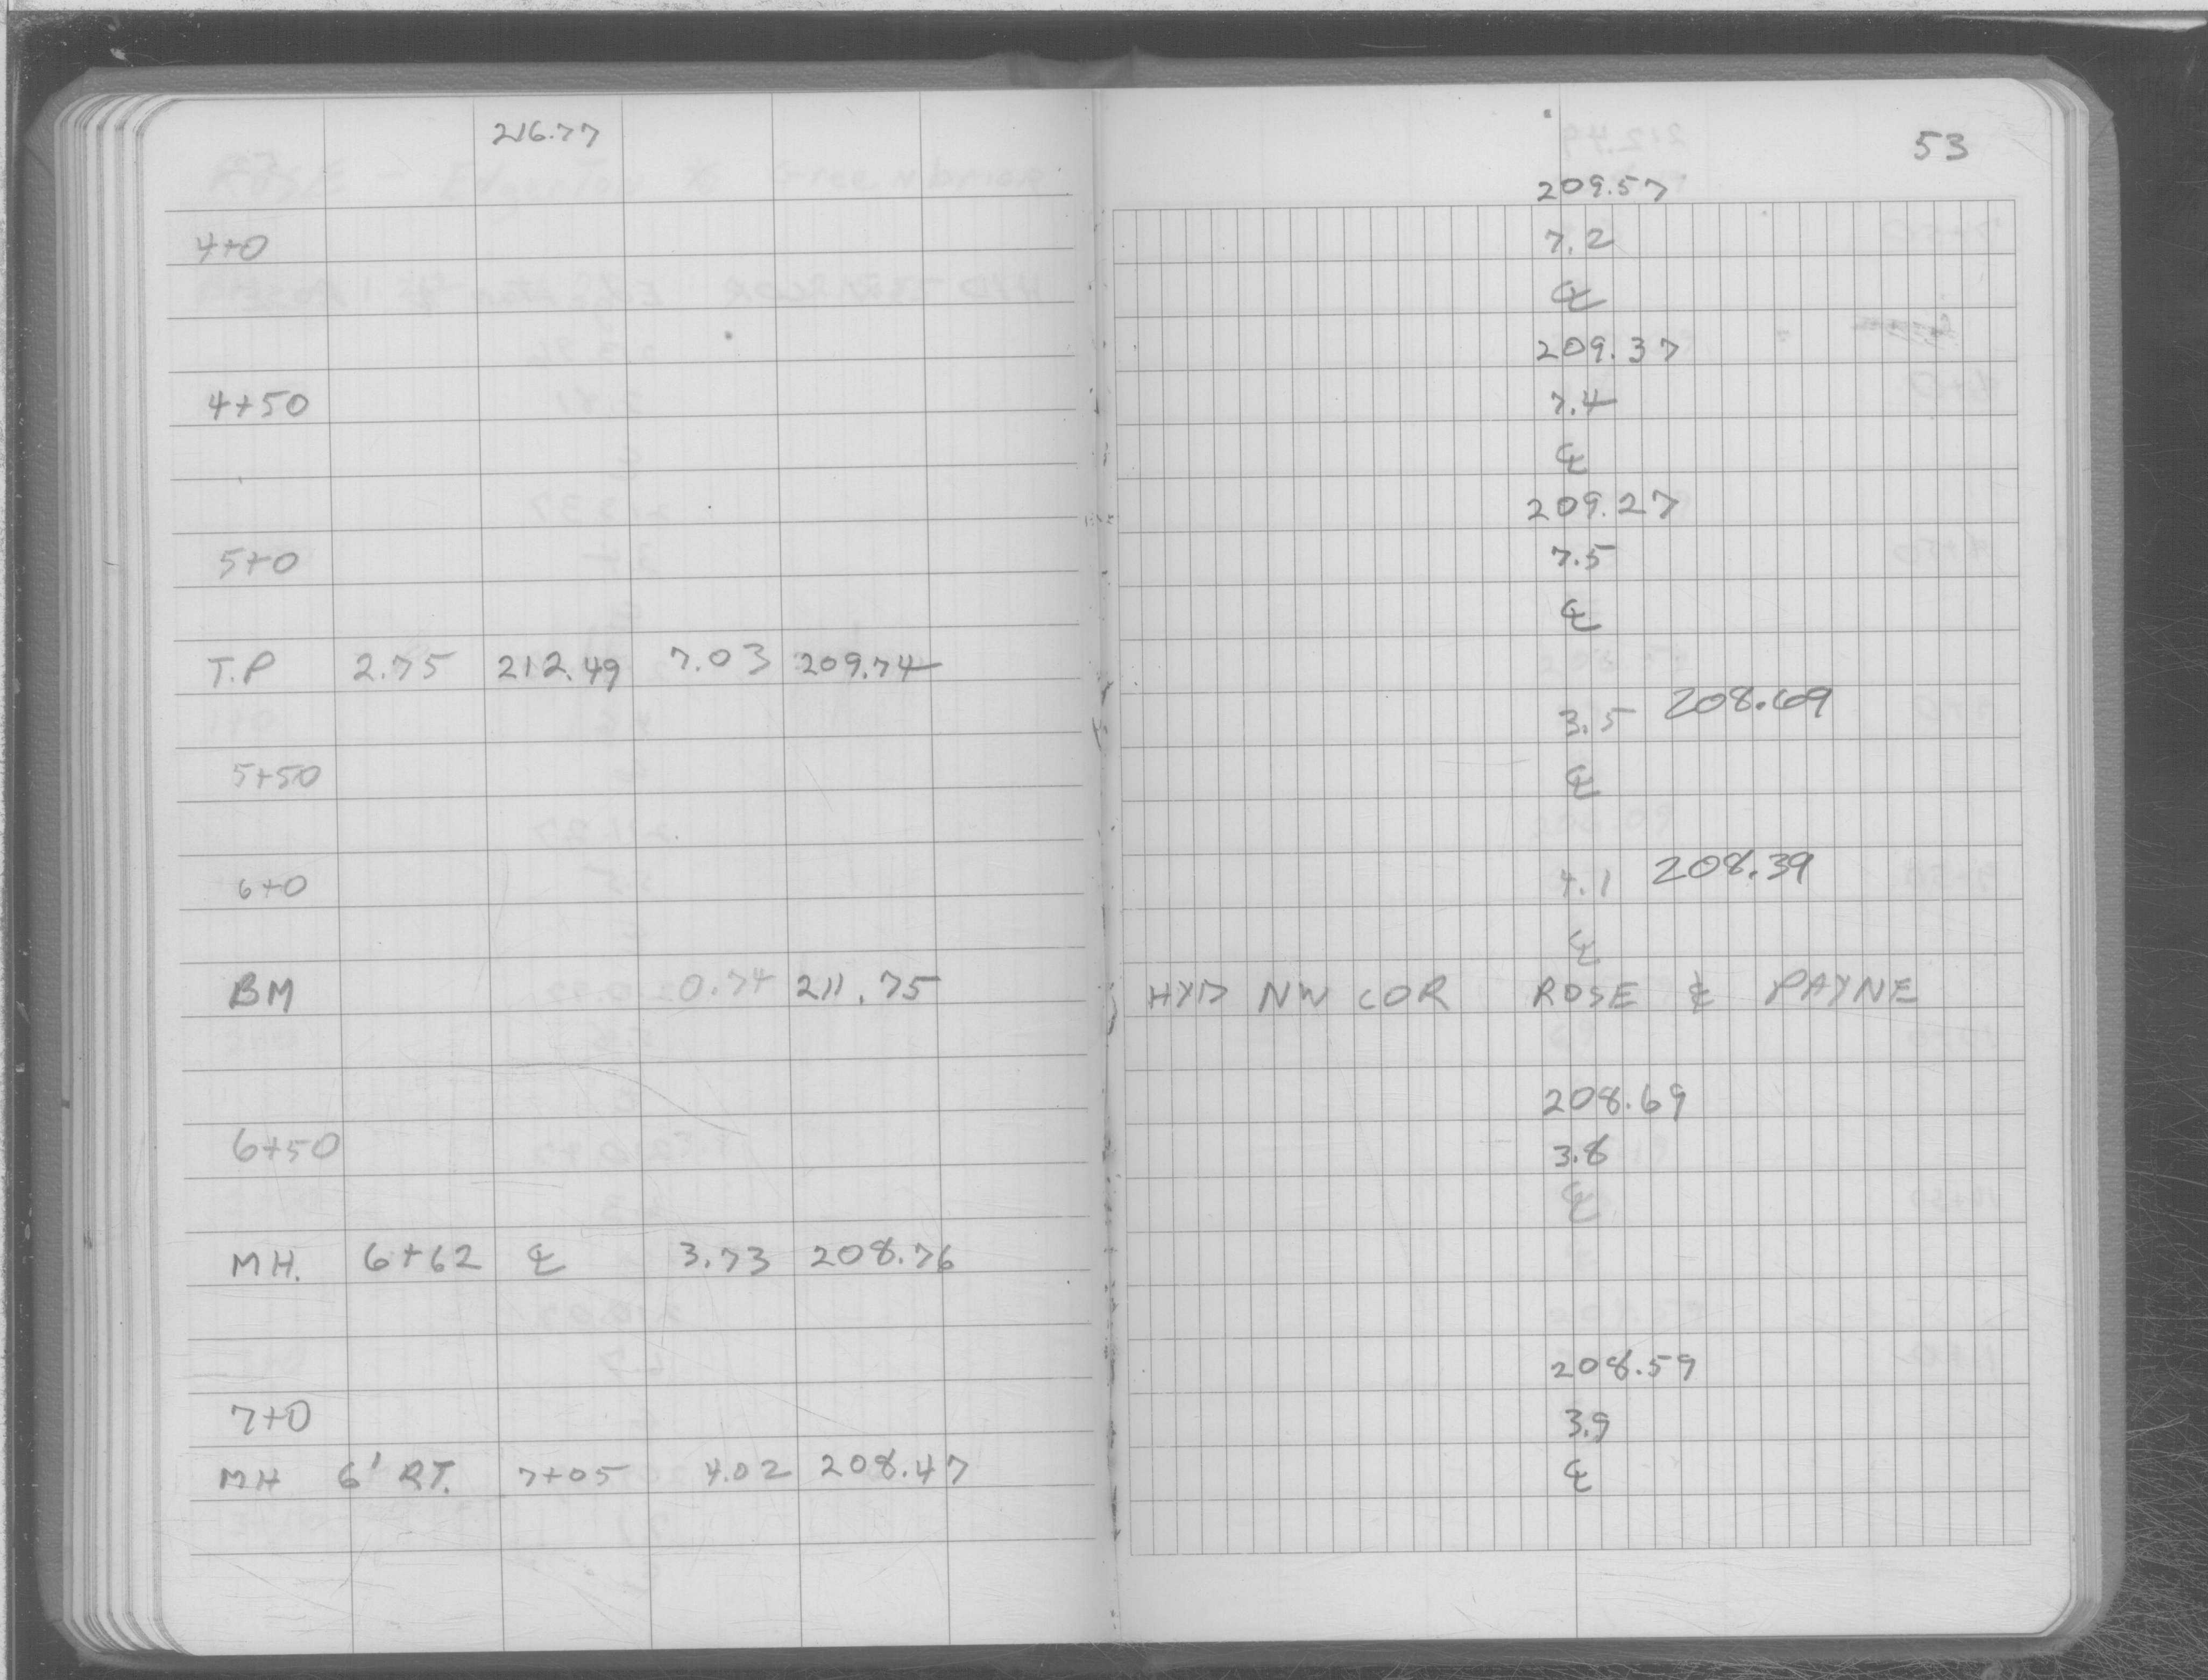 216.77
4+0
4+50
5+0
T.P 2.75 212.49 7.03 209.74
5+50
6+0
BM 0.74 211.75
6+50
MH. 6+62 ℄ 3.73 208.76
7+0
MH 6' RT. 7+05 4.02 208.47
53
209.57
7.2
℄
209.37
7.4
℄
209.27
7.5
℄
3.5 208.69
℄
4.1 208.39
℄
HYD NW COR ROSE & PAYNE
208.69
3.8
℄
208.59
3.9
℄